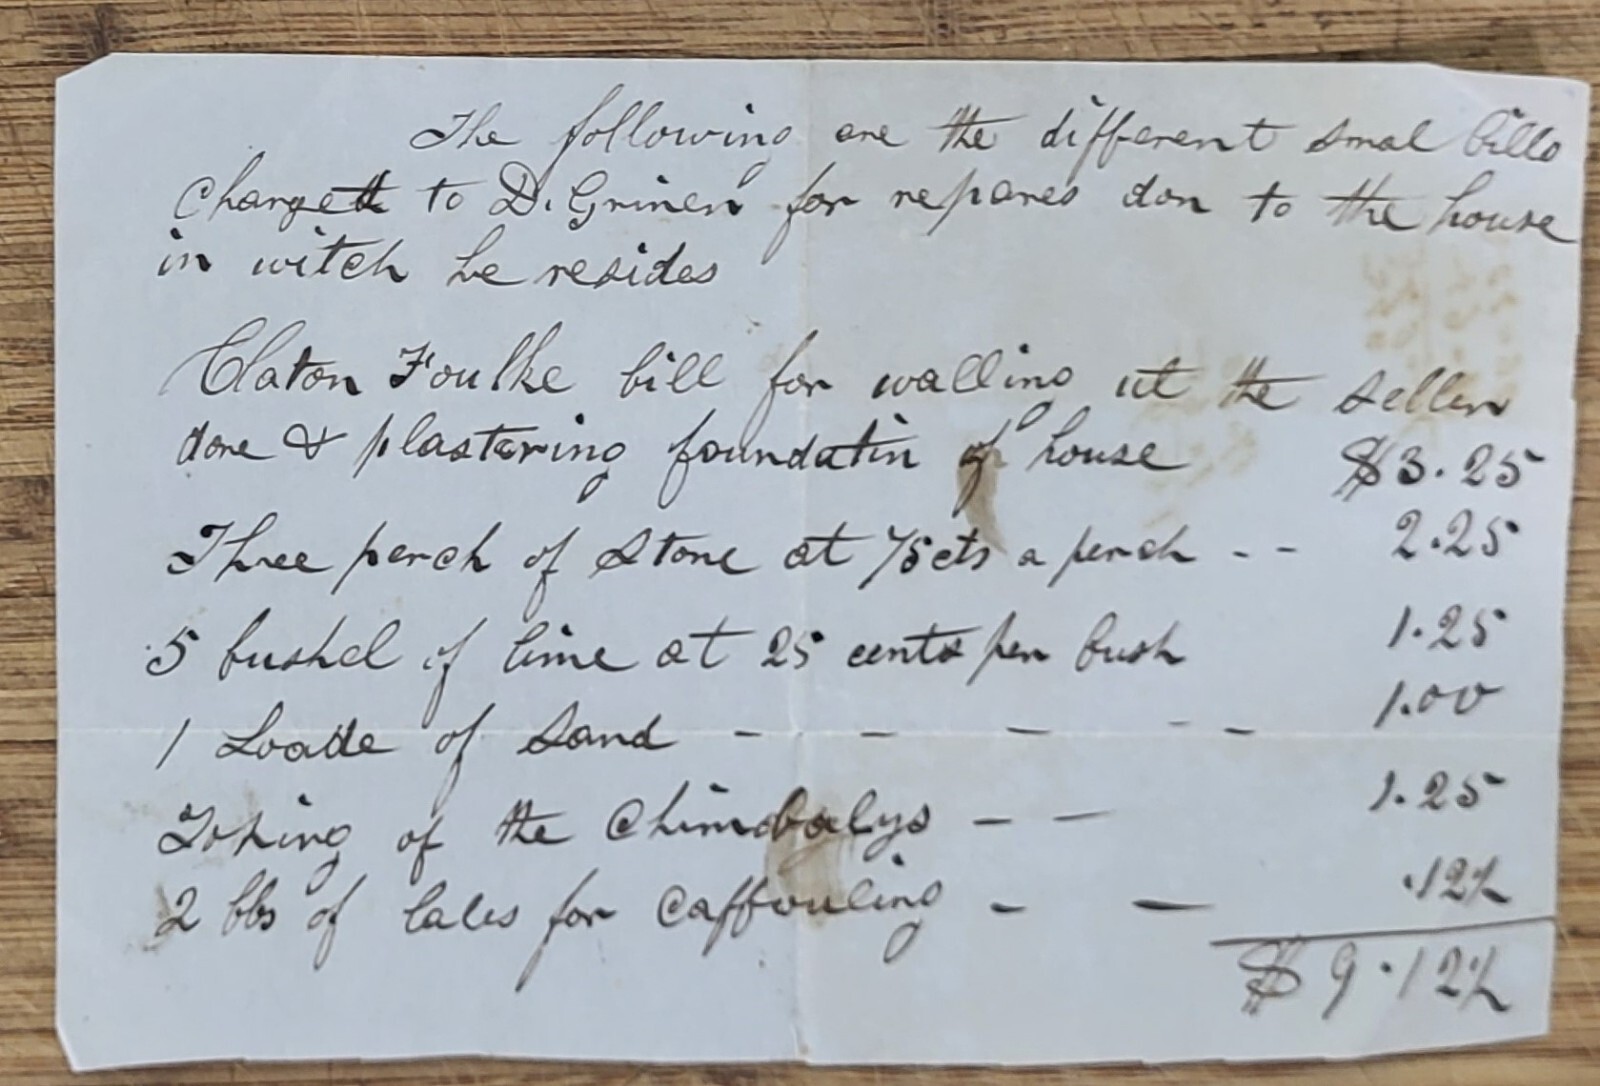 The following are the different smal bills
Chargett to D. Grinen for repares don to the house
in witch he resides
Claton Foulke bill for walling ut the sellen
dore & plastering foundatin of house $3.25
Three perch of Stone at 75 cts a perch - - 2.25
5 bushel of lime at 25 cents per bush 1.25
1 Loade of Sand - - - - - 1.00
of the Chimbalys - - 1.25
2 lbs of for - - .12½
$9.12½